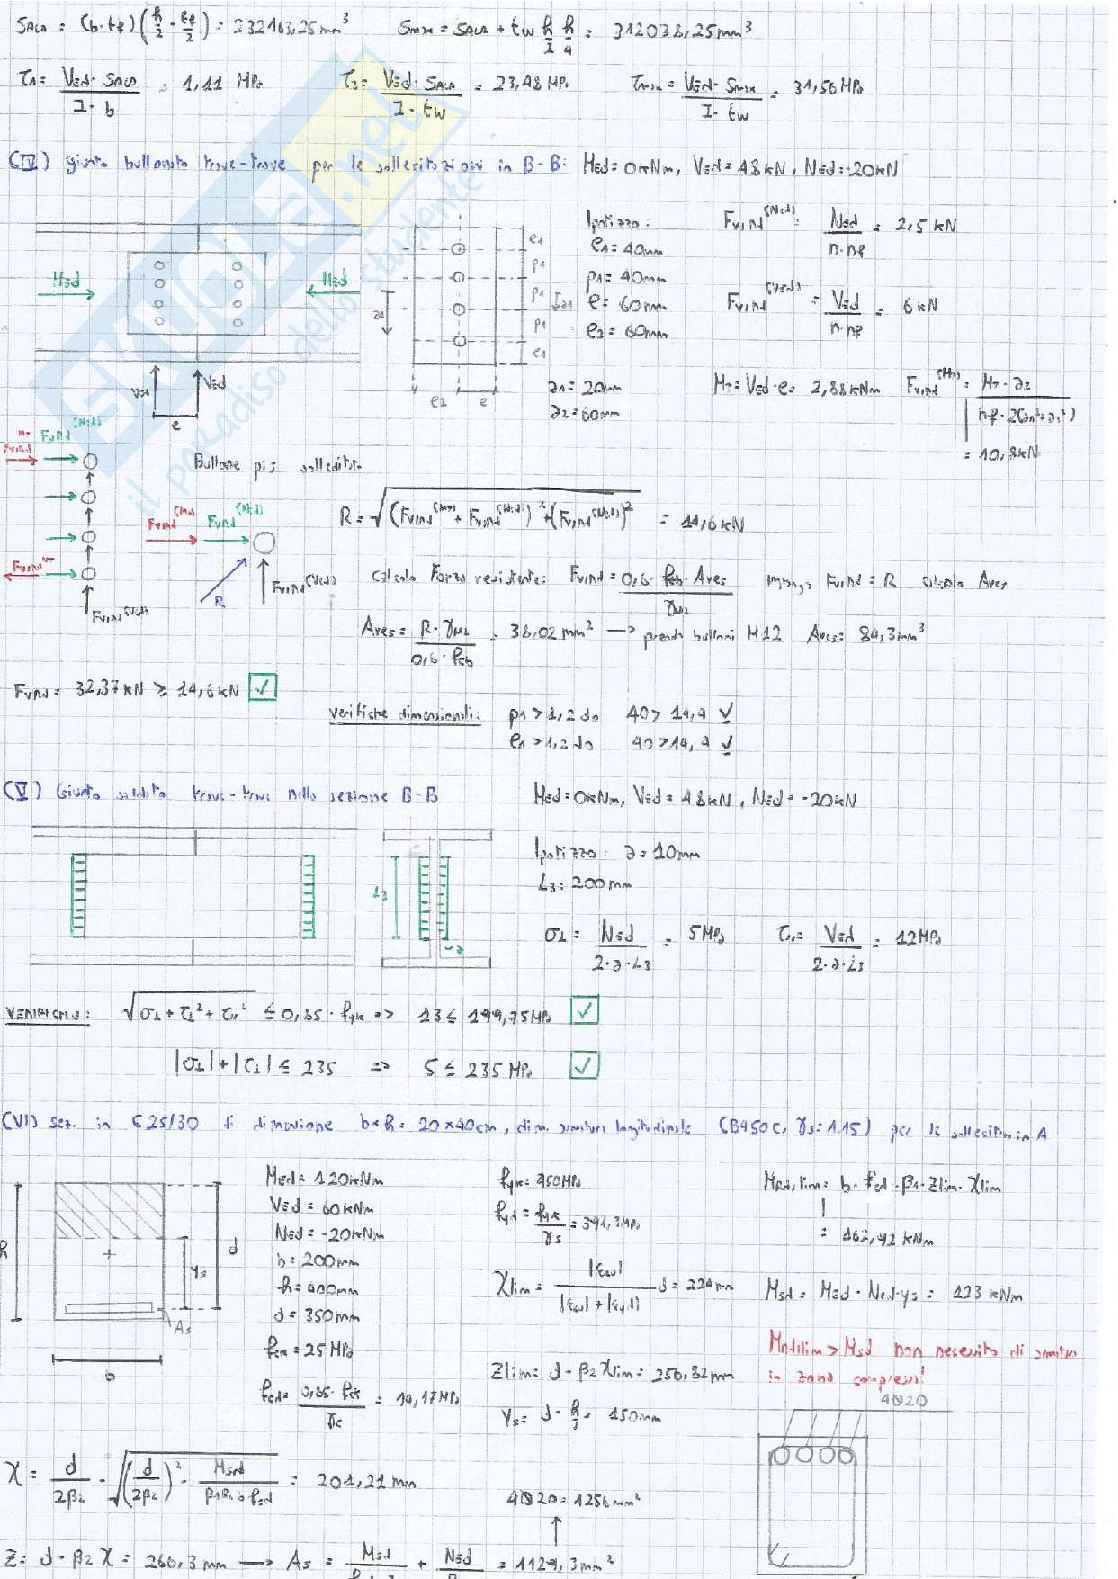 S_ALA = (b·tf)(h/2 - tf/2) = 232163,25mm³   Smax = S_ALA + tw h/2 h/4 = 312038,25mm³
τ1 = Ved·S_ALA / I·b = 1,11 MPa   τ2 = Ved·S_ALA / I·tw = 23,48 MPa   τmax = Ved·Smax / I·tw = 31,56 MPa
(IV) giunto bullonato trave-trave per le sollecitazioni in B-B: Med=0kNm, Ved=48kN, Ned=-20kN
Ipotizzo:
e1 = 40mm
p1 = 40mm
e = 60mm
e2 = 60mm
a1 = 20mm
a2 = 60mm
Fv,Ed^(Ned) = Ned / n·nf = 2,5 kN
Fv,Ed^(Ved) = Ved / n·nf = 6 kN
MT = Ved·e = 2,88kNm
= 10,8kN
Ned
Ned
Ved
Ved
e
e1
p1
p1
p1
e1
a2
e2
e
Bullone più sollecitato
R = √((Fv,Ed^(MT) + Fv,Ed^(Ned))² + (Fv,Ed^(Ved))²) = 14,6kN
Calcolo Forza resistente: Fv,Rd = 0,6·ftb·Ares / γM2   impongo Fv,Rd = R calcolo Ares
Ares = R·γM2 / 0,6·ftb = 38,02mm² → prendo bulloni M12 Ares = 84,3mm²
Fv,Rd = 32,37kN ≥ 14,6kN ✓
verifiche dimensionali: p1 > 1,2do 40 > 14,4 ✓
e1 > 1,2do 40 > 14,4 ✓
(V) Giunto saldato trave-trave nella sezione B-B   Med=0kNm, Ved=48kN, Ned=-20kN
Ipotizzo a=10mm
L3 = 200mm
L3
a
σ⊥ = Ned / 2·a·L3 = 5MPa   τ// = Ved / 2·a·L3 = 12MPa
VERIFICHE: √(σ⊥² + τ⊥² + τ//²) ≤ 0,85·fyk => 13 ≤ 199,75MPa ✓
|σ⊥|+|τ⊥| ≤ 235 => 5 ≤ 235 MPa ✓
(VI) sez. in C25/30 di dimensione b×h = 20×40cm, dim. armatura longitudinale (B450C, γs=1.15) per le sollecitazioni in A
Med = 120kNm
Ved = 60kNm
Ned = -20kNm
b = 200mm
h = 400mm
d = 350mm
fck = 25 MPa
fcd = 0,85·fck / γc = 14,17MPa
fyk = 450MPa
fyd = fyk / γs = 391,3MPa
xlim = |εcu| / |εcu|+|εyd| d = 224mm
Zlim = d - β2 xlim = 256,82mm
ys = d - h/2 = 150mm
MRd,lim = b·fcd·β1·Zlim·xlim
= 162,42 kNm
Msd = Med - Ned·ys = 123 kNm
MRd,lim > Msd non necessito di armatura
in zona compressa!
h
d
ys
As
b
4Ø20
x = d/2β2 - √((d/2β2)² - Msd/β1β2 b fcd) = 201,21mm
4Ø20 = 1256mm²
Z = d - β2 x = 266,3mm → As = Msd + Ned = 1129,3mm²